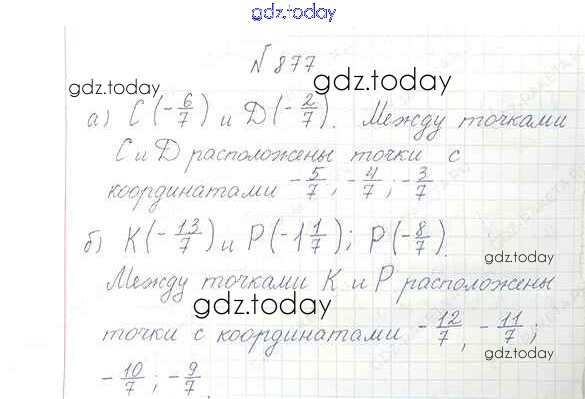 gdz.today
№ 877
gdz.today
gdz.today
а) C(-6/7) и D(-2/7). Между точками
C и D расположены точки с
координатами -5/7; -4/7; -3/7
б) K(-13/7) и P(-1 1/7); P(-8/7).
gdz.today
Между точками K и P расположены
gdz.today
точки с координатами -12/7, -11/7;
gdz.today
-10/7; -9/7
gdz.today